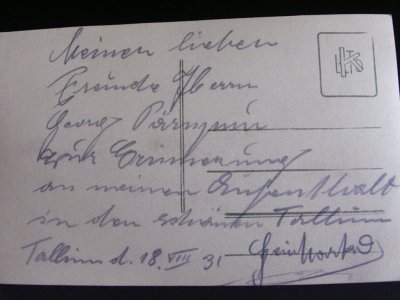 Meinen lieben
Freunde Herrn
Georg Pärnpuu
zur Erinnerung
an meinen Aufenthalt
in den schönen Tallinn
Tallinn d. 18. VIII 31